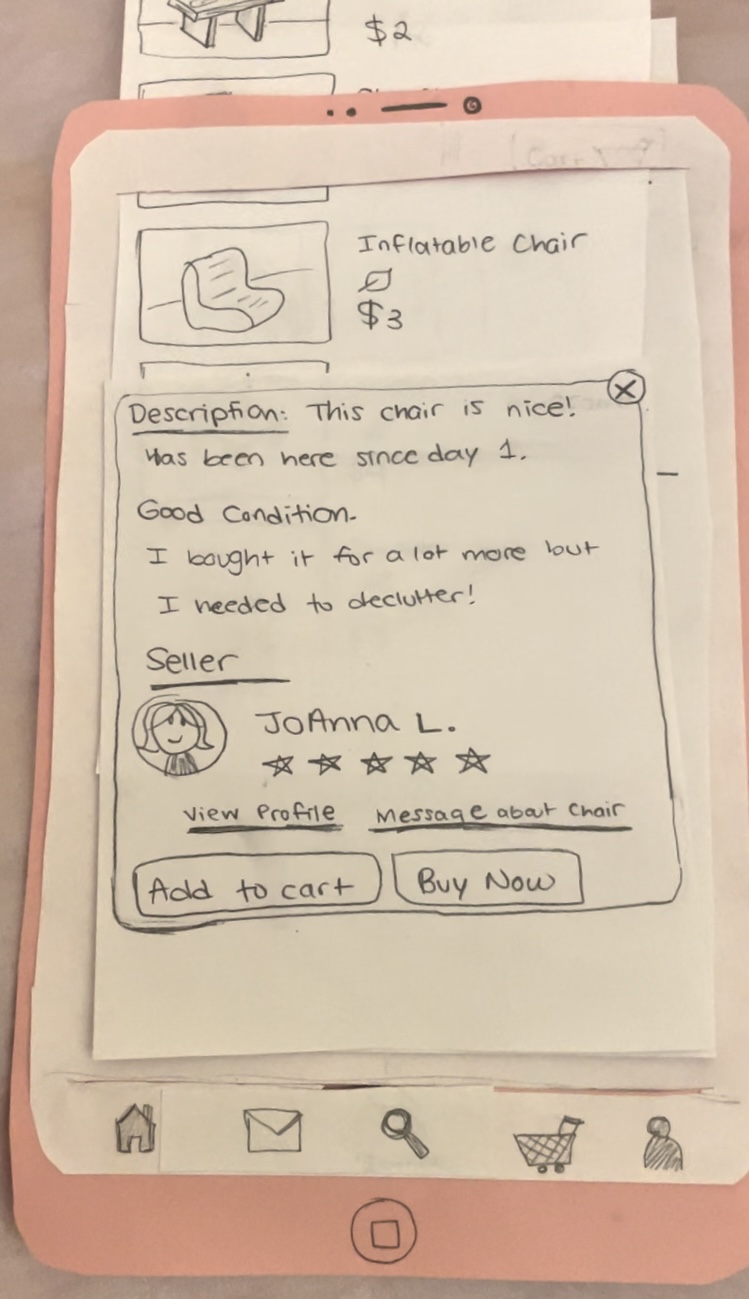 $2
Inflatable Chair
$3
Description: This chair is nice!
Has been here since day 1.
Good Condition.
I bought it for a lot more but
I needed to declutter!
Seller
JoAnna L.
View Profile Message about Chair
Add to cart Buy Now